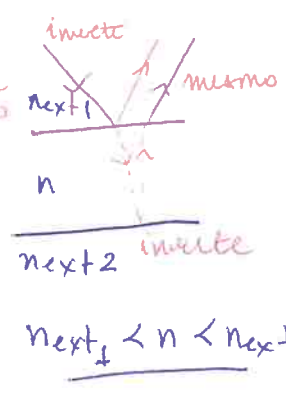 inverte
mesmo
next1
n
inverte
next2
next1 < n < next